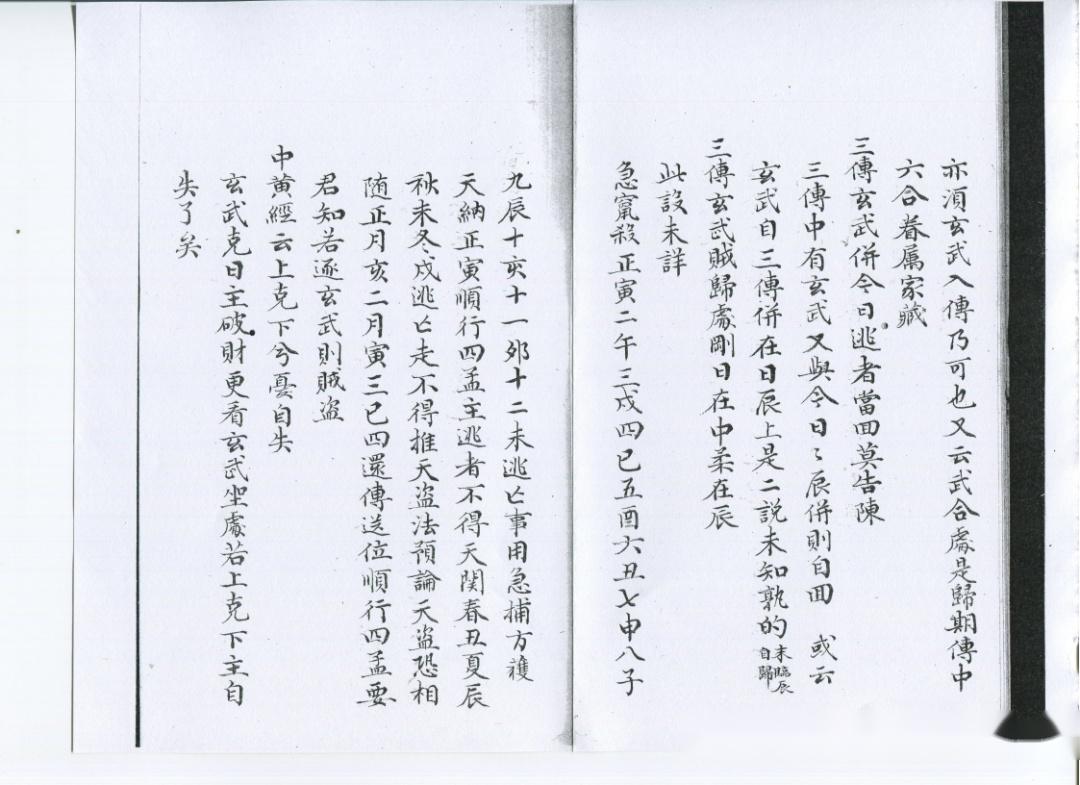 亦須玄武入傳乃可也又云武合處是歸期傳中
六合眷属家藏
三傳玄武併今日逃者當回莫告陳
三傳中有玄武又與今日々辰併則自回　或云
玄武自三傳併在日辰上是二説未知孰的末臨辰自歸
三傳玄武賊歸處剛日在中柔在辰
此設未詳
急竄殺正寅二午三戌四巳五酉六丑七申八子
九辰十亥十一夘十二未逃亡事用急捕方獲
天納正寅順行四孟主逃者不得天関春丑夏辰
秋未冬戌逃亡走不得推天盗法預論天盗恐相
随正月亥二月寅三巳四還傳送位順行四孟要
君知若逐玄武則賊盗
中黄經云上克下兮憂自失
玄武克日主破財更看玄武坐處若上克下主自
失了矣